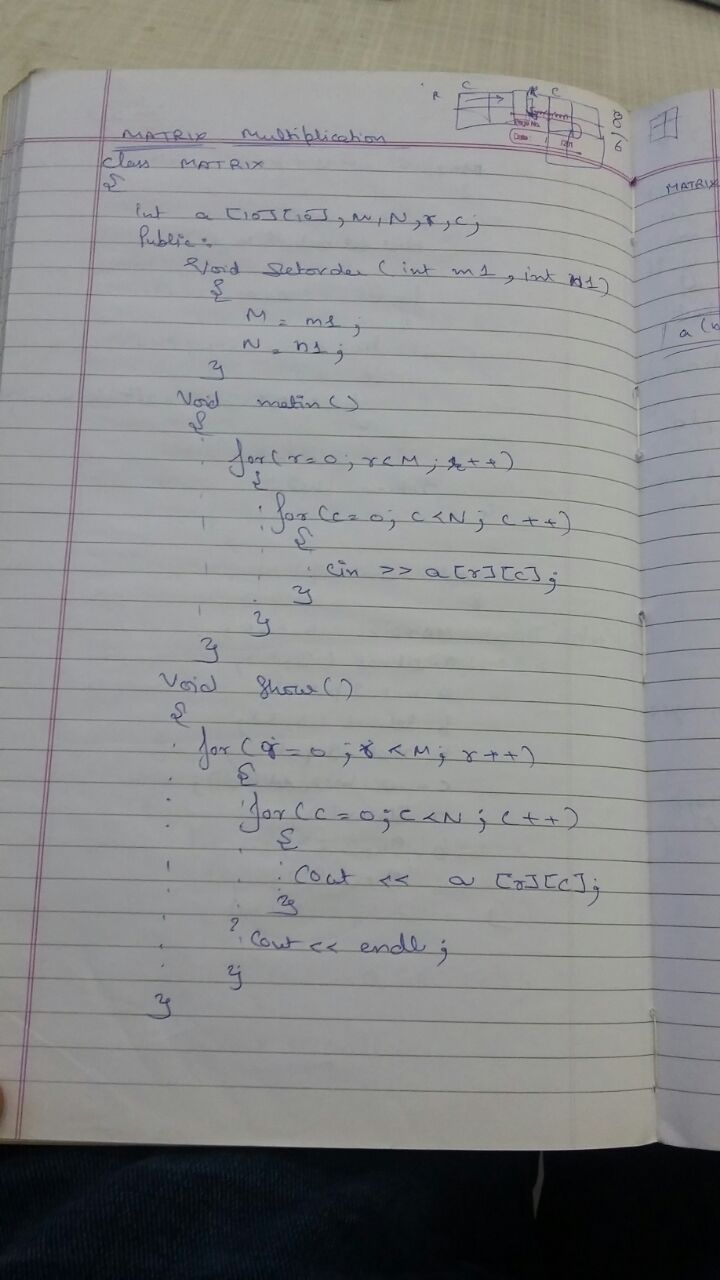 C
R
R C
8
6
Page No.
Date
MATRIX Multiplication
Class MATRIX
{
int a [10][10], M, N, r, c;
Public:
Void Setorder (int m1, int n1)
{
M = m1;
N = n1;
}
Void matin()
{
for(r=0; r<M; r++)
{
for(c=0; c<N; c++)
{
cin >> a[r][c];
}
}
}
Void show()
{
for(r=0; r<M; r++)
{
for(c=0; c<N; c++)
{
Cout << a [r][c];
}
Cout << endl;
}
}
MATRIX